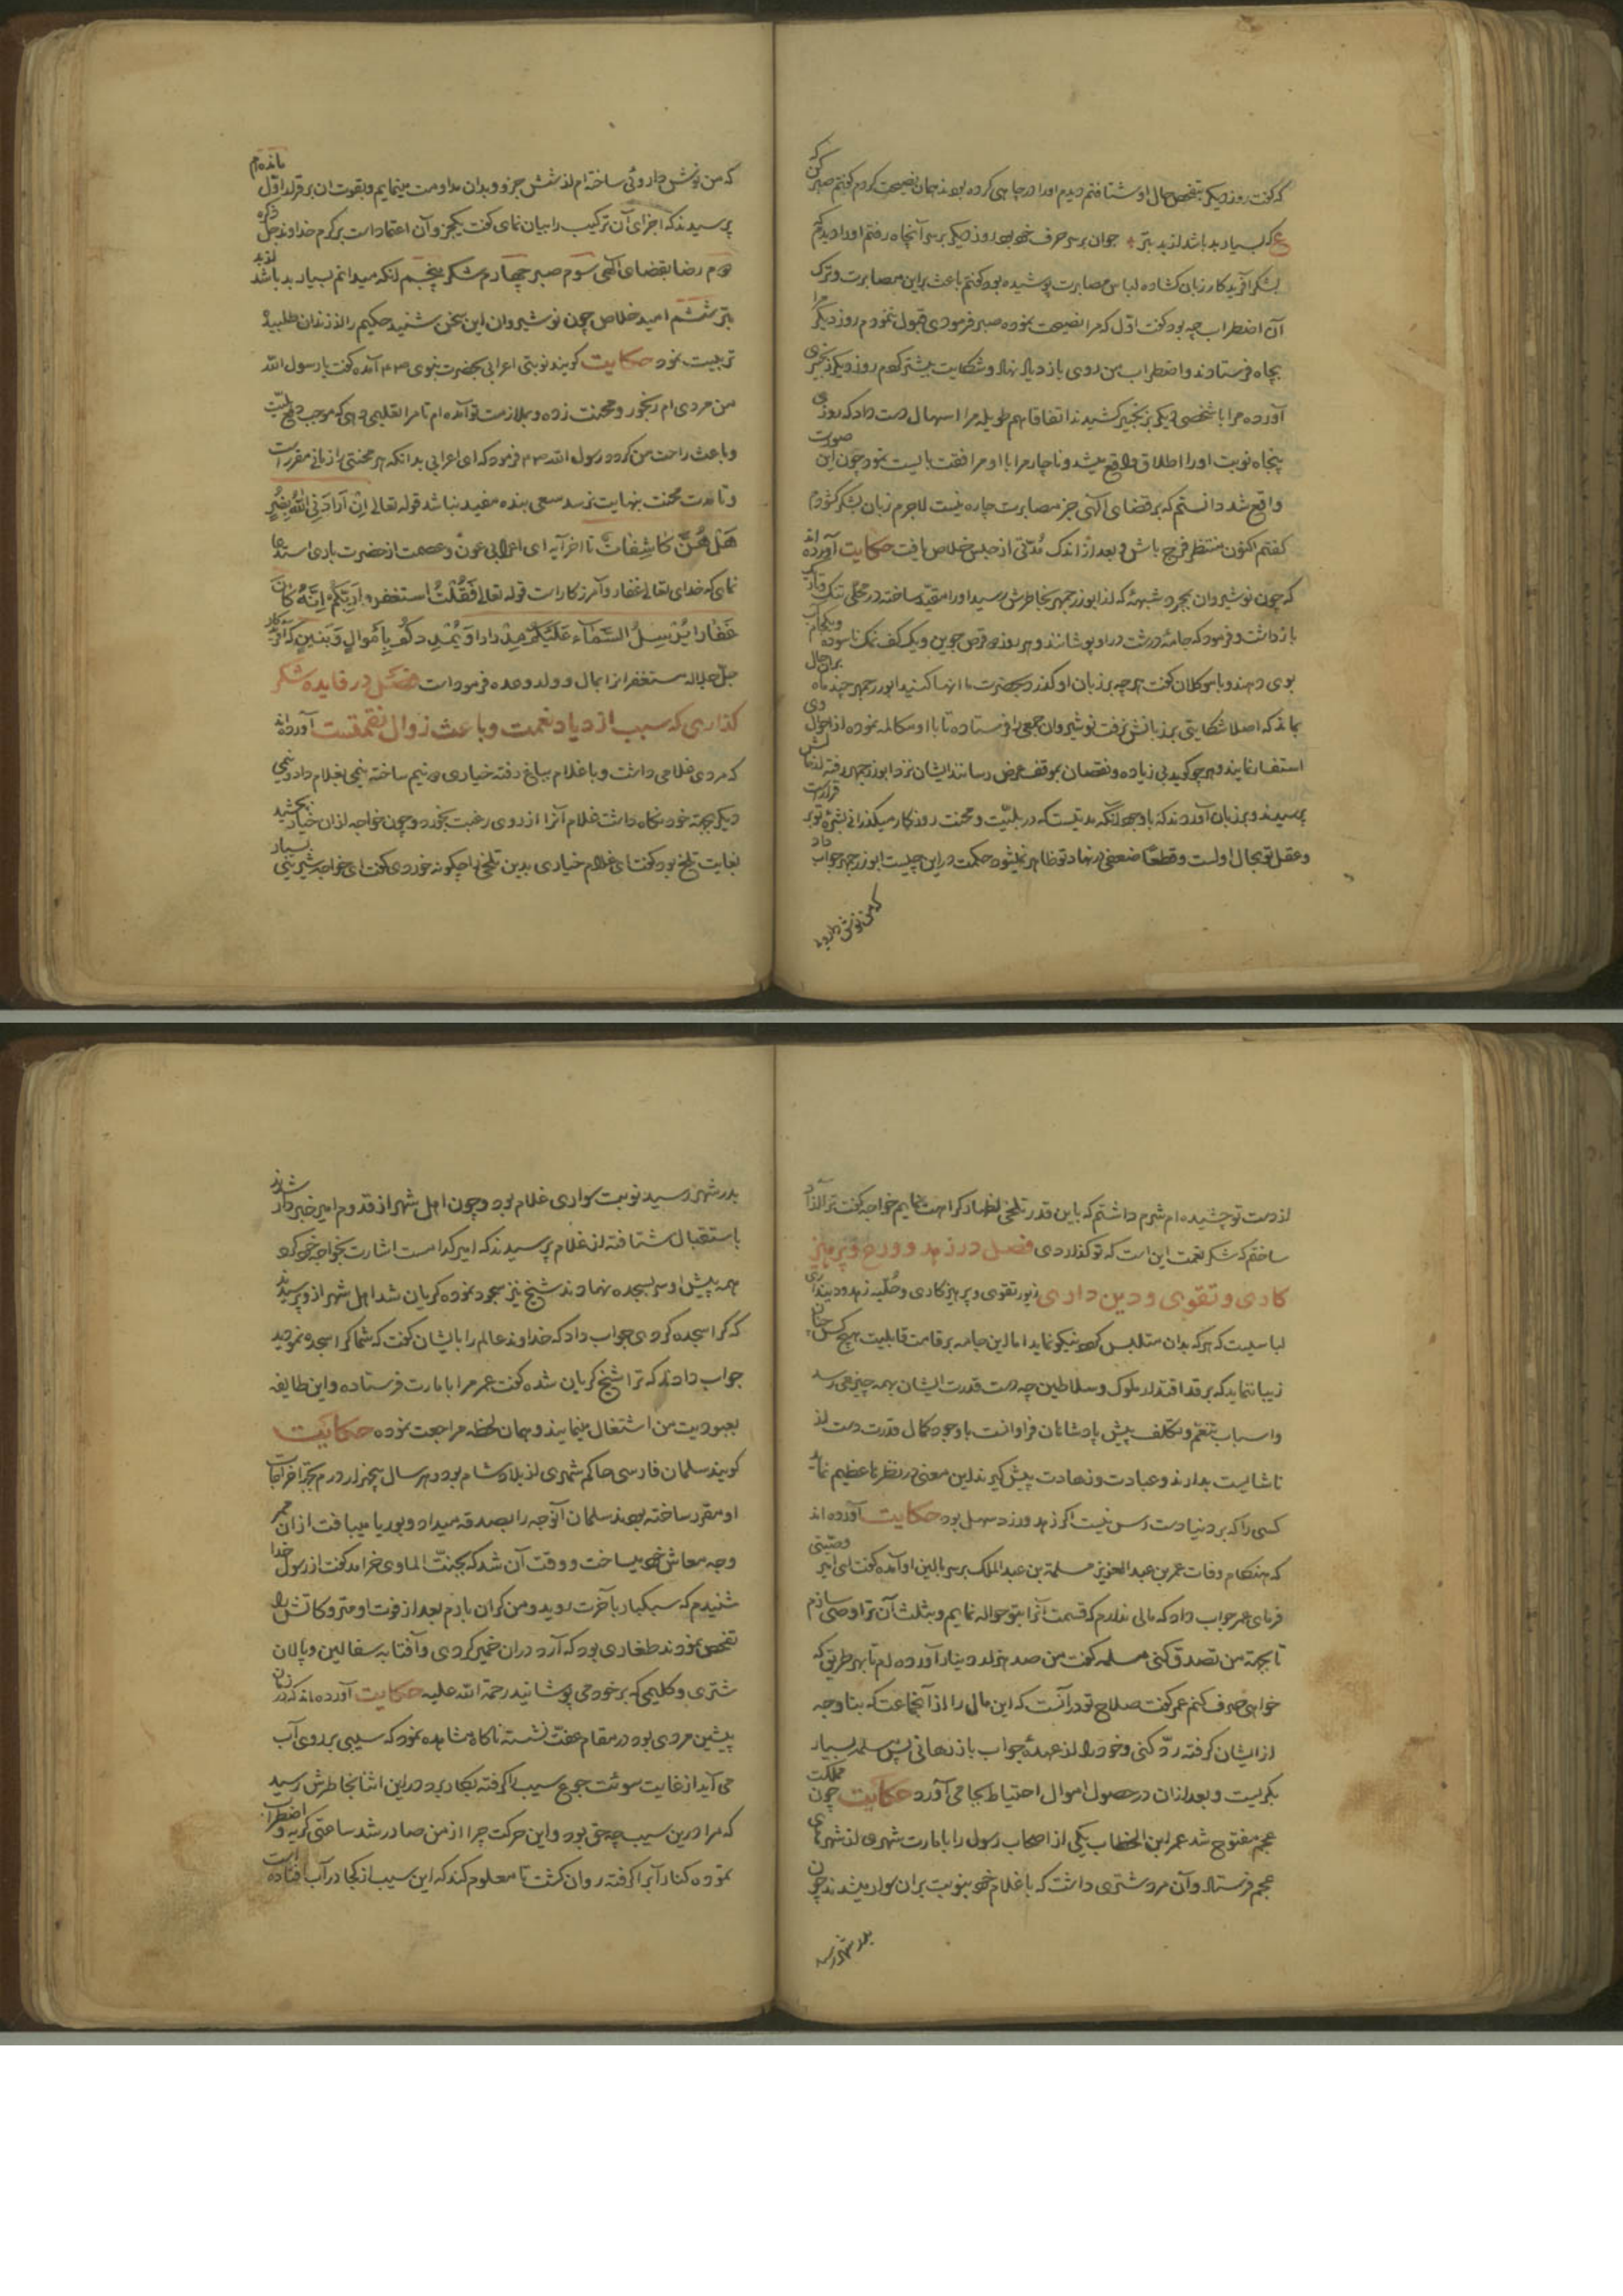 که گفت روز دیگر بتفحص حال او شتافتم دیدم او را در چاهی کرده بودند همان نصیحت کردم گفتم صبر کن که
ع که بسیار بد باشد از بد بتر جوان بر سر حرف خود بود روز دیگر بر سر آنچاه رفتم او را دیدم که
بشکر آفریدکار زبان کشاده لباس مصابرت پوشیده بود گفتم باعث بر این مصابرت و ترک
آن اضطراب چه بود گفت اول که مرا نصیحت نموده صبر فرمودی قبول ننمودم روز دیگر مرا
بچاه فرستادند و اضطراب من روی بازدیاد نهاد و شکایت بیشتر کردم روز دیگر زنجیری
آورده مرا با شخصی دیگر بزنجیر کشیدند اتفاقا هم طویله مرا اسهال دست داد که روزی
پنجاه نوبت او را اطلاق واقع میشد و ناچار مرا با او مرافقت بایست نمود چون این صورت
واقع شد دانستم که بر قضای الهی جز مصابرت چاره نیست لاجرم زبان بشکر کشودم
گفتم اکنون منتظر فرج باش و بعد از اندک مدتی از حبس خلاص یافت حکایت آورده اند
که چون نوشیروان بمجرد شبهۀ که از ابوزرجمهر بخاطرش رسید او را مقید ساخته در محلی تنک و تاریک
بازداشت و فرمود که جامۀ درشت در او پوشانند و هر روز دو قرص جوین و یک کف نمک ناسوده و یکجام آب
بوی دهند و با موکلان گفت هر چه بر زبان او گذرد بحضرت ما انها کنید ابوزرجمهر چند ماه بر این حال
بماند که اصلا شکایتی بر زبانش نرفت نوشیروان جمعی را فرستاده تا با او مکالمه نموده از احوال وی
استفسار نمایند و هر چه گوید بی زیاده و نقصان بموقف عرض رسانند ایشان نزد ابوزرجمهر رفته از حالش
پرسیدند و بر زبان آوردند که با وجود آنکه مدتیست که در بلیت و محنت روزکار میگذرانی بشرۀ تو بر قرار است
و عقل تو بحال اولست و قطعا ضعفی در نهاد تو ظاهر نمیشود حکمت در این چیست ابوزرجمهر جواب داد
که من نوش داروئی
که من نوش داروئی ساخته ام از شش جزو و بدان مداومت مینمایم و بقوت ان بر قرار اول مانده ام
پرسیدند که اجزای آن ترکیب را بیان نمای گفت یکجزو آن اعتماد است بر کرم خداوند جل ذکره
دوم رضا بقضای الهی سوم صبر چهارم شکر پنجم آنکه میدانم بسیار بد باشد از بد
بتر ششم امید خلاص چون نوشیروان این سخن بشنید حکیم را از زندان طلبیده
تربیت نمود حکایت گویند نوبتی اعرابی بحضرت نبوی آمده گفت یا رسول الله
من مردی ام رنجور و محنت زده و بملازمت تو آمده ام تا مرا تعلیمی دهی که موجب دفع بلیت
و باعث راحت من گردد رسول الله فرمود که ای اعرابی بدانکه هر محنتی را زمانی مقرر است
و تا مدت محنت بنهایت نرسد سعی بنده مفید نباشد قوله تعالی ان ارادنی الله بضر
هل هن کاشفات تا اخر آیه ای اعرابی عون و عصمت از حضرت باری استدعا
نمای که خدای تعالی غفار و آمرزکار است قوله تعالی فقلت استغفروا ربکم انه کان
غفارا یرسل السماء علیکم مدرارا و یمددکم باموال و بنین که آفریدکار
جل جلاله مستغفرانرا مال و ولد وعده فرموداست فصل در فایده شکر
گذاری که سبب ازدیاد نعمت و باعث زوال نقمتست آورده اند
که مردی غلامی داشت و با غلام بباغ رفته خیاری دو نیم ساخته نیمی بغلام داد و نیمی
دیکر بجهته خود نگاه داشت غلام آنرا از روی رغبت بخورد و چون خواجه از ان خیار بچشید
بغایت تلخ بود گفت ای غلام خیاری بدین تلخی را چکونه خوردی گفت ای خواجه شیرینی بسیار
از دست تو چشیده ام شرم داشتم که باین قدر تلخی اظهار کراهت نمایم خواجه گفت ترا آزاد
ساختم که شکر نعمت این است که تو گذاردی فصل در زهد و ورع و پرهیز
کاری و تقوی و دین داری زیور تقوی و پرهیزکاری و حلیه زهد و دینداری
لباسیست که هر که بدان متلبس گردد نیکو نماید اما این جامه بر قامت قابلیت هیچ کس چنان
زیبا ننماید که بر قد اقتدار ملوک و سلاطین چه دست قدرت ایشان بهمه چیز می رسد
و اسباب تنعم و تکلف پیش پادشاهان فراوانست با وجود کمال قدرت دست از
ناشایست بدارند و عبادت و زهادت پیش گیرند این معنی در نظرها عظیم نماید
کسی را که بر دنیا دست رس نیست اگر زهد ورزد سهل بود حکایت آورده اند
که هنکام وفات عمر بن عبد العزیز مسلمة بن عبد الملک بر سر بالین او آمده گفت ای امیر وصیتی
فرمای عمر جواب داد که مالی ندارم که قسمت آنرا بتو حواله نمایم و بثلث آن ترا وصی سازم
تا بجهة من تصدق کنی مسلمه گفت من صد هزار دینار آورده ام تا بهر طریق که
خواهی صرف کنم عمر گفت صلاح تو در آنست که این مال را از آنجماعت که بنا وجه
از ایشان گرفته رد کنی و خود را از عهدۀ جواب باز رهانی پس مسلمه بسیار
بگریست و بعد از ان در حصول اموال احتیاط بجا می آورد حکایت چون مملکت
عجم مفتوح شد عمر ابن الخطاب یکی از اصحاب رسول را بامارت شهری از شهرهای
عجم فرستاد و آن مرد شتری داشت که با غلام خود بنوبت بر ان سوار میشدند چون
بدر شهر رسید
بدر شهر رسید نوبت سواری غلام بود و چون اهل شهر از قدوم امیر خبردار شدند
باستقبال شتافته از غلام پرسیدند که امیر کدامست اشارت بخواجه خود کرد
همه پیش او سر بسجده نهادند شیخ نیز سجود نموده گریان شد اهل شهر از و پرسیدند
که کرا سجده کردی جواب داد که خداوند عالم را با ایشان گفت که شما کرا سجده نمودید
جواب دادند که ترا شیخ گریان شده گفت عمر مرا بامارت فرستاده و این طایفه
بعبودیت من اشتغال مینمایند و همان لحظه مراجعت نموده حکایت
گویند سلمان فارسی حاکم شهری از بلاد شام بود و هر سال پنجهزار درم بجهة اخراجات
او مقرر ساخته بودند سلمان آنوجه را بصدقه میداد و بوریا میبافت از ان ممر
وجه معاش خود میساخت و وقت آن شد که بجنت الماوی خرامد گفت از رسول خدا
شنیدم که سبکبار بآخرت روید و من گران بارم بعد از فوت او متروکاتش را
تفحص نمودند طغاری بود که آرد در ان خمیر کردی و آفتابه سفالین و پالان
شتری و کلیمی که بر خود می پوشانید رحمة الله علیه حکایت آورده اند که در زمان
پیشین مردی بود در مقام عفت نشسته ناکاه مشاهده نمود که سیبی بر روی آب
می آید از غایت سوئت جوع سیب را گرفته بکار برد در این اثنا بخاطرش رسید
که مرا درین سیب چه حق بود و این حرکت چرا از من صادر شد ساعتی گریه و اضطراب
نموده کنار آب را گرفته روان گشت تا معلوم کند که این سیب از کجا در آب افتاده است